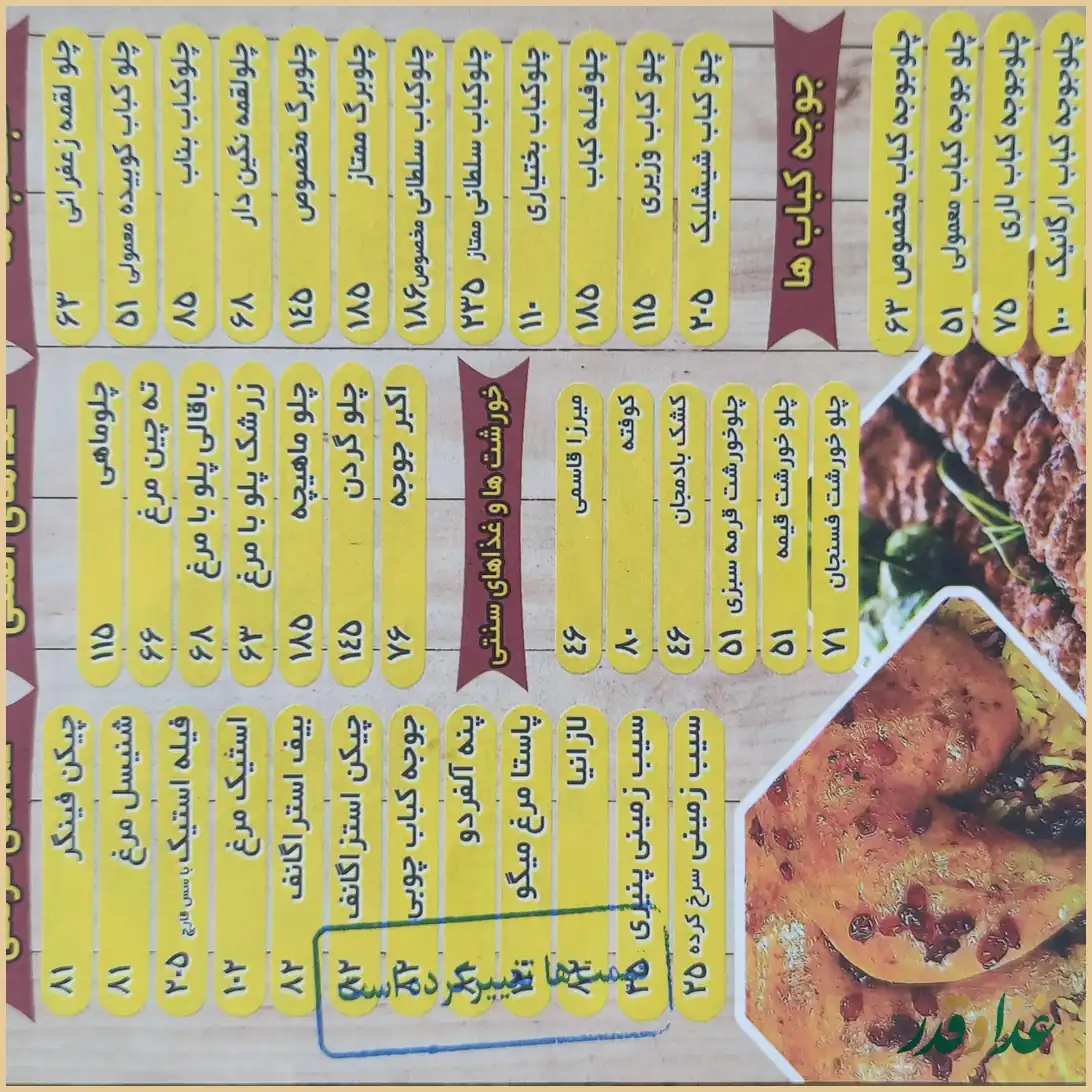 چلو لقمه زعفرانی ۶۳
چلو کباب کوبیده معمولی ۵۱
چلوکباب بناب ۸۵
چلولقمه نگین دار ۶۸
چلوبرگ مخصوص ۱۴۵
چلوبرگ ممتاز ۱۸۵
چلوکباب سلطانی مخصوص ۱۸۶
چلوکباب سلطانی ممتاز ۲۳۵
چلوکباب بختیاری ۱۱۰
چلوفیله کباب ۱۸۵
چلو کباب وزیری ۱۱۵
چلو کباب شیشلیک ۲۰۵
جوجه کباب ها
چلوجوجه کباب مخصوص ۶۳
چلو جوجه کباب معمولی ۵۱
چلوجوجه کباب لاری ۷۵
چلوجوجه کباب ارگانیک ۱۰۰
چلوماهی ۱۱۵
ته چین مرغ ۶۶
باقالی پلو با مرغ ۶۸
زرشک پلو با مرغ ۶۳
چلو ماهیچه ۱۸۵
چلو گردن ۱۴۵
اکبر جوجه ۷۶
خورشت ها و غذاهای سنتی
میرزا قاسمی ۴۶
کوفته ۸۰
کشک بادمجان ۴۶
چلوخورشت قرمه سبزی ۵۱
چلو خورشت قیمه ۵۱
چلو خورشت فسنجان ۷۱
چیکن فینگر ۸۱
شنیسل مرغ ۸۱
فیله استیک با سس قارچ ۲۰۵
استیک مرغ ۱۰۲
بیف استراگانف ۸۲
چیکن استراگانف ۸۲
جوجه کباب چوبی
پنه آلفردو
پاستا مرغ میگو
لازانیا
سیب زمینی پنیری ۳۵
سیب زمینی سرخ کرده ۲۵
قیمت ها تغییر کرده است
غذا و قدر